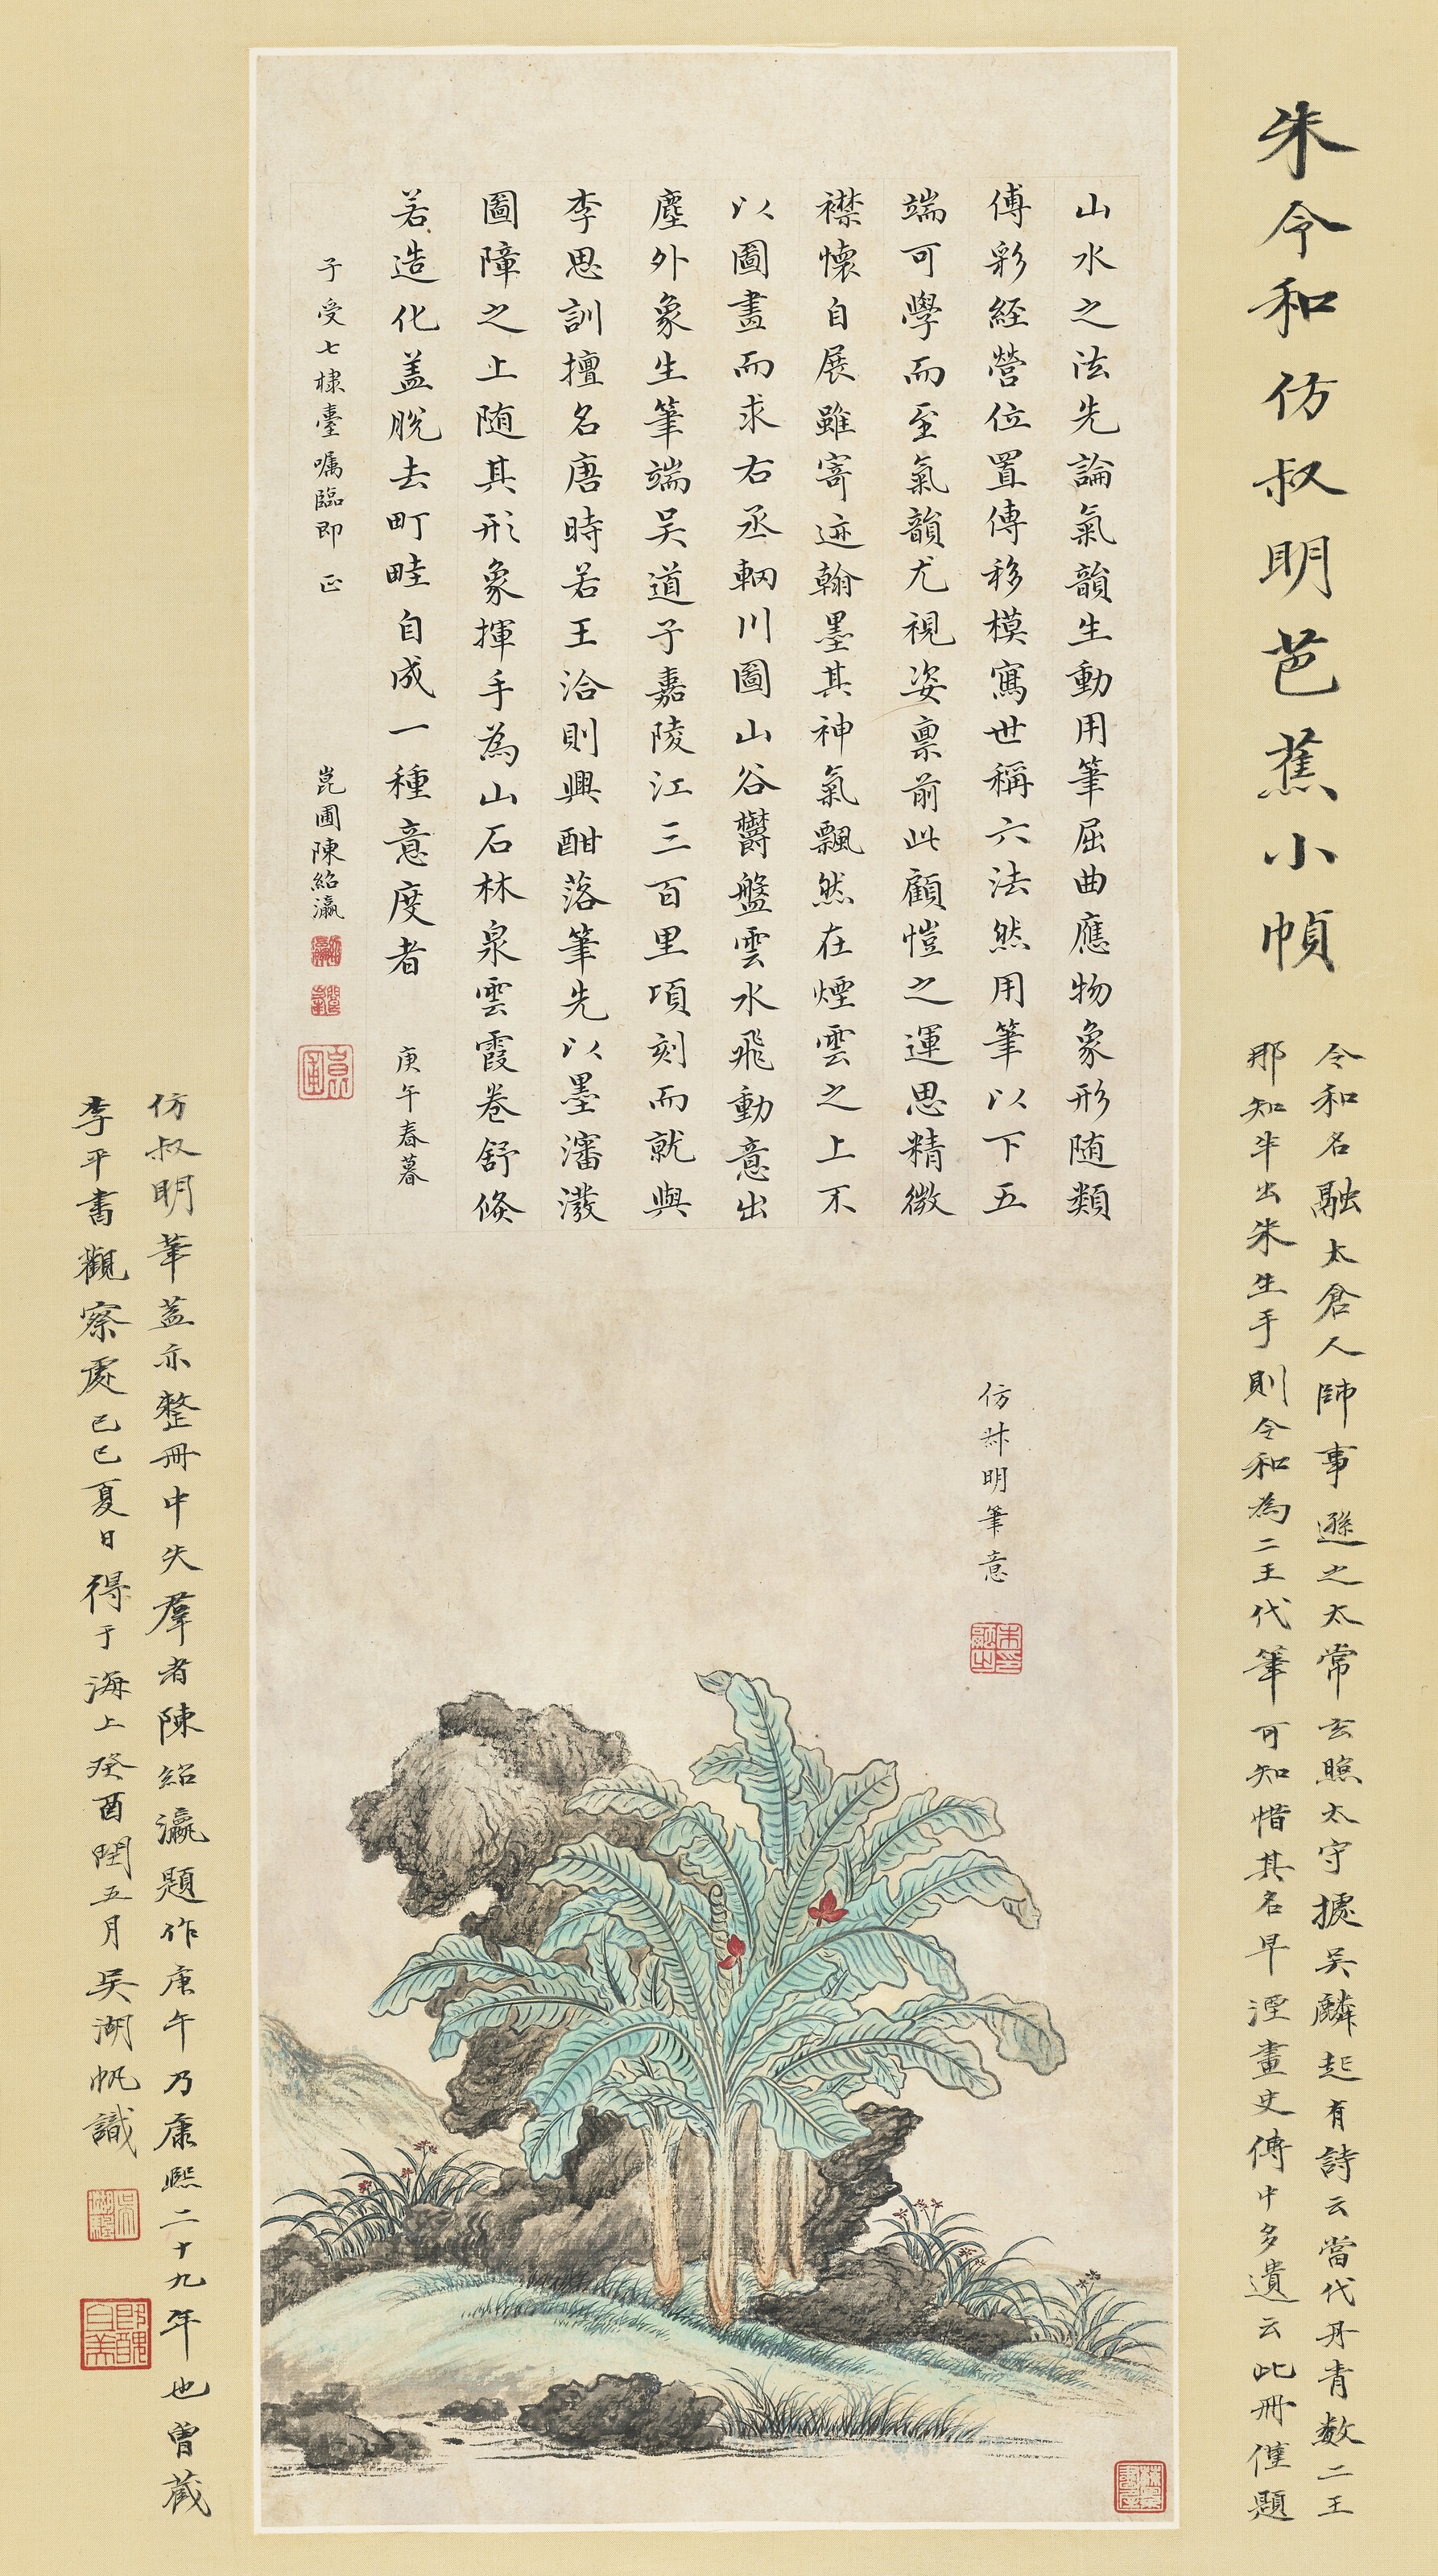 朱令和仿叔明芭蕉小幀
令和名融太倉人師事遜之太常玄照太守據吳麟起有詩云當代丹青數二王
那知半出朱生手則令和為二王代筆可知惜其名早湮畫史傳中多遺云此冊僅題
山水之法先論氣韻生動用筆屈曲應物象形随類
傅彩經營位置傳移模寫世稱六法然用筆以下五
端可學而至氣韻尤視姿禀前此顧愷之運思精微
襟懷自展雖寄迹翰墨其神氣飄然在煙雲之上不
以圖畫而求右丞輞川圖山谷欝盤雲水飛動意出
塵外象生筆端吴道子嘉陵江三百里頃刻而就與
李思訓擅名唐時若王洽則興酣落筆先以墨瀋潑
圖障之上随其形象揮手為山石林泉雲霞卷舒倐
若造化盖脫去町畦自成一種意度者 庚午春暮
子受七棣臺嘱臨即 正 崑圃陳紹瀛
仿叔明筆意
朱融之印
仿叔明筆蓋亦整冊中失羣者陳紹瀛題作庚午乃康熙二十九年也曾藏
李平書觀察處己巳夏日得于海上癸酉閏五月吳湖帆識